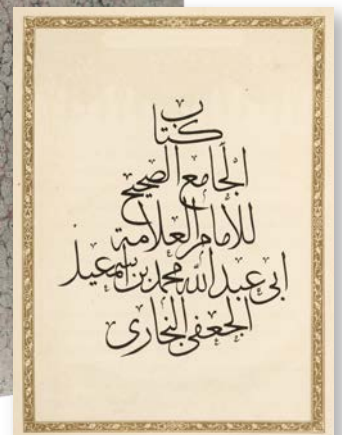 كتاب
الجامع الصحيح
للامام العلامة
ابى عبد الله محمد بن اسمعيل
الجعفى البخارى